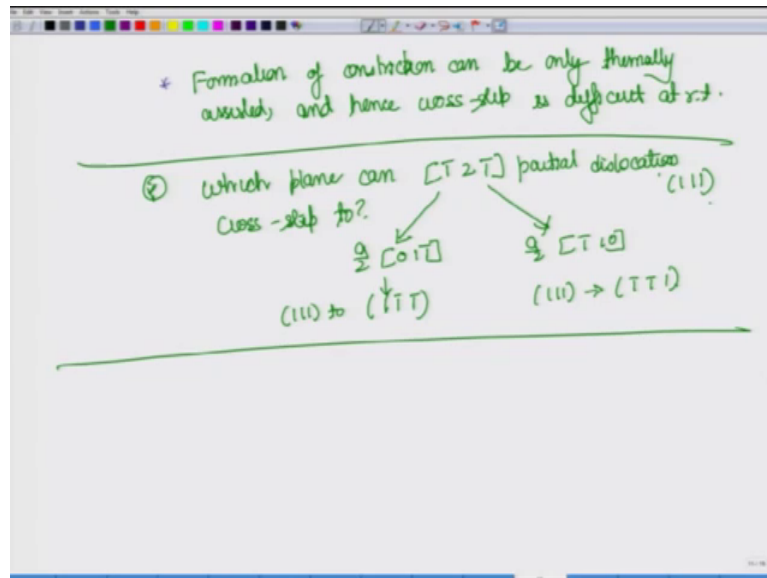 * Formation of constriction can be only thermally
assisted, and hence cross-slip is difficult at r.t.
Q which plane can [1̅ 2 1̅] partial dislocation (111)
cross-slip to?
a/2 [0 1 1̅] a/2 [1̅ 1 0]
(111) to (1 1̅ 1̅) (111) → (1̅ 1̅ 1)